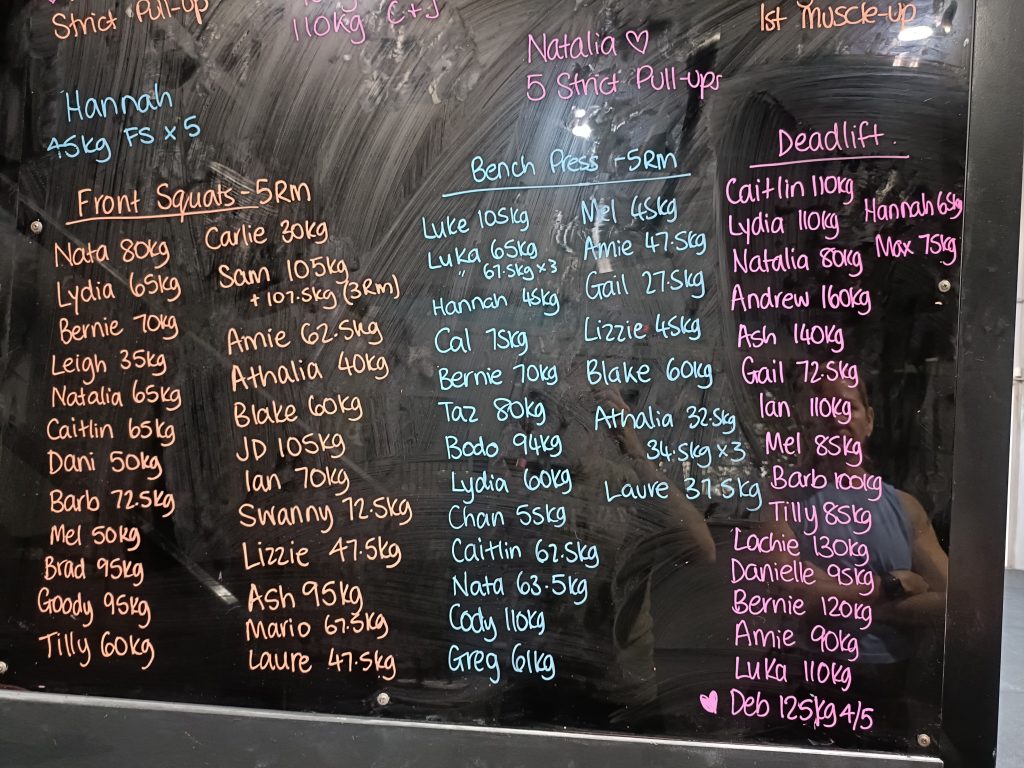 Strict Pull-up
110kg C+J
1st Muscle-up
Natalia ♡
5 Strict Pull-ups
Hannah
45kg FS x 5
Front Squats-5Rm
Nata 80kg
Lydia 65kg
Bernie 70kg
Leigh 35kg
Natalia 65kg
Caitlin 65kg
Dani 50kg
Barb 72.5kg
Mel 50kg
Brad 95kg
Goody 95kg
Tilly 60kg
Carlie 30kg
Sam 105kg
+ 107.5kg (3Rm)
Amie 62.5kg
Athalia 40kg
Blake 60kg
JD 105kg
Ian 70kg
Swanny 72.5kg
Lizzie 47.5kg
Ash 95kg
Mario 67.5kg
Laure 47.5kg
Bench Press -5Rm
Luke 105kg
Luka 65kg
" 67.5kg x3
Hannah 45kg
Cal 75kg
Bernie 70kg
Taz 80kg
Bodo 94kg
Lydia 60kg
Chan 55kg
Caitlin 62.5kg
Nata 63.5kg
Cody 110kg
Greg 61kg
Mel 45kg
Amie 47.5kg
Gail 27.5kg
Lizzie 45kg
Blake 60kg
Athalia 32.5kg
34.5kg x3
Laure 37.5kg
Deadlift.
Caitlin 110kg
Lydia 110kg
Natalia 80kg
Andrew 160kg
Ash 140kg
Gail 72.5kg
Ian 110kg
Mel 85kg
Barb 100kg
Tilly 85kg
Lachie 130kg
Danielle 95kg
Bernie 120kg
Amie 90kg
Luka 110kg
♥ Deb 125kg 4/5
Hannah 65kg
Max 75kg